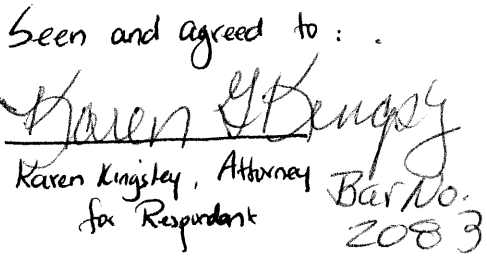 Seen and agreed to:
Karen G Kingsley
Karen Kingsley, Attorney
for Respondant
Bar No.
2083